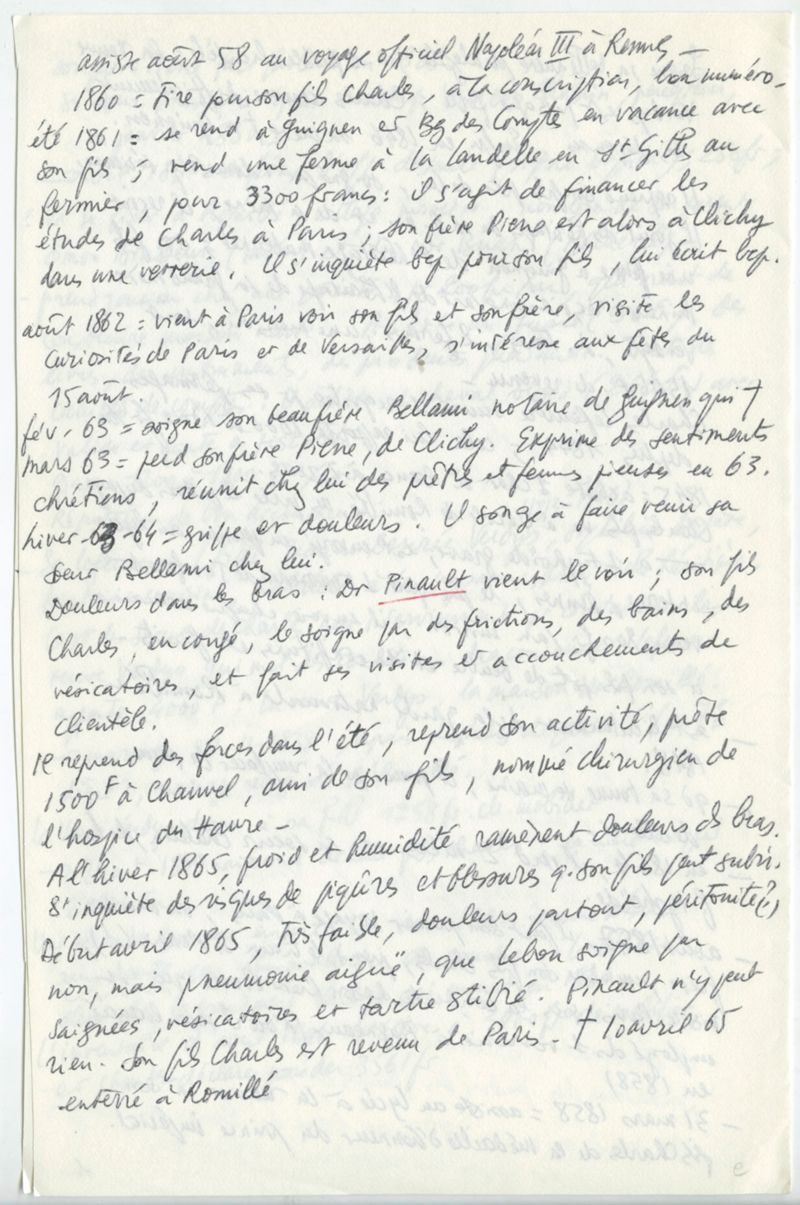 assiste août 58 au voyage officiel Napoléon III à Rennes –
1860 = Tire pour son fils Charles, à la conscription, bon numéro –
été 1861 = se rend à Guignen et Bg des Comptes en vacance avec
son fils ; vend une ferme à la Landelle en St Gilles au
fermier, pour 3300 francs : il s'agit de financer les
études de Charles à Paris ; son frère Pierre est alors à Clichy
dans une verrerie. Il s'inquiète bcp pour son fils, lui écrit bcp.
août 1862 = vient à Paris voir son fils et son frère, visite les
curiosités de Paris et de Versailles, s'intéresse aux fêtes du
15 août.
fév. 63 = soigne son beau frère Bellami notaire de Guignen qui †
mars 63 = perd son frère Pierre, de Clichy. Exprime des sentiments
chrétiens, réunit chez lui des prêtres et femmes pieuses en 63.
hiver 63-64 = grippe et douleurs. Il songe à faire venir sa
seur Bellami chez lui.
Douleurs dans les bras : Dr Pinault vient le voir ; son fils
Charles, en congé, le soigne par des frictions, des bains, des
vésicatoires, et fait ses visites et accouchements de
clientèle.
Il reprend des forces dans l'été, reprend son activité, prête
1500 F à Chauvel, ami de son fils, nommé chirurgien de
l'hospice du Havre –
A l'hiver 1865, froid et humidité ramènent douleurs ds bras.
S'inquiète des risques de piqûres et blessures q. son fils peut subir.
Début avril 1865, très faible, douleurs partout, péritonite (?)
non, mais pneumonie aiguë, que Lebon soigne par
saignées, vésicatoires et tartre stibié. Pinault n'y peut
rien. Son fils Charles est revenu de Paris. † 10 avril 65
enterré à Romillé
e